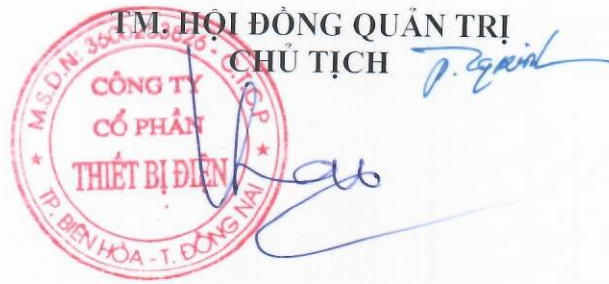 TM. HỘI ĐỒNG QUẢN TRỊ
CHỦ TỊCH
M.S.D.N: - C.T.C.P
CÔNG TY
CỔ PHẦN
THIẾT BỊ ĐIỆN
TP. BIÊN HÒA - T. ĐỒNG NAI